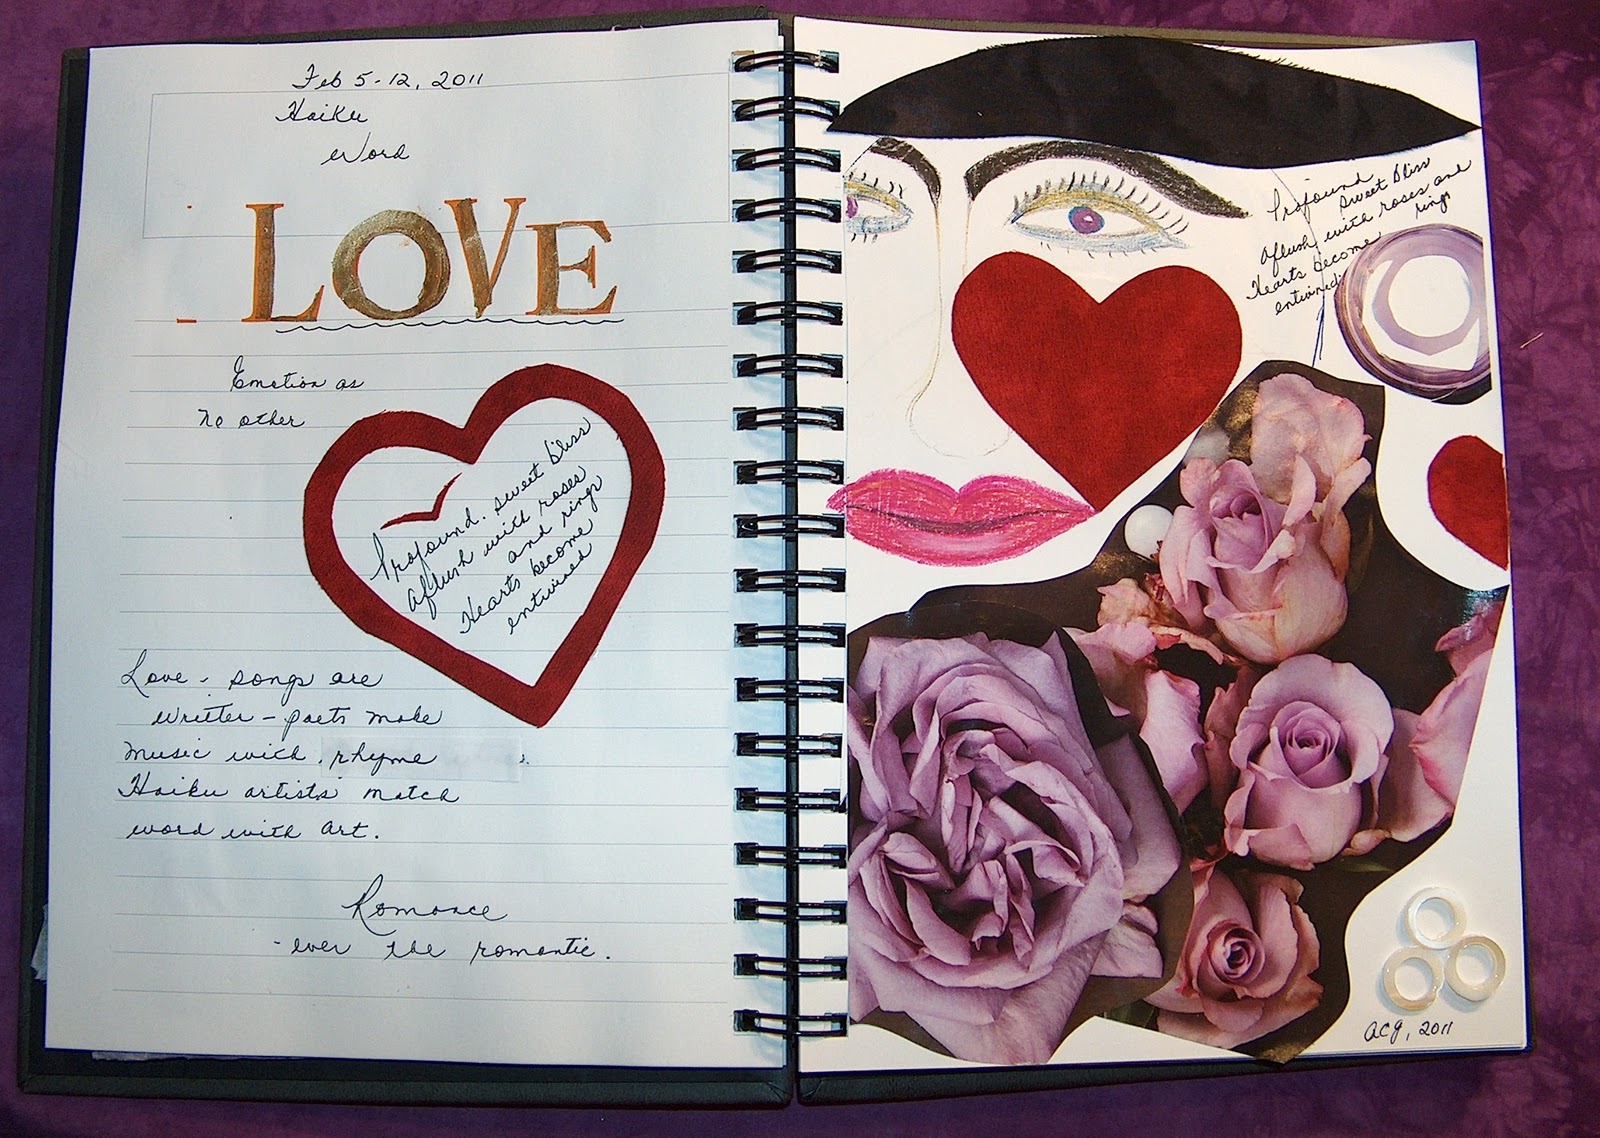 Feb 5-12, 2011
Haiku
Word
LOVE
Emotion as
no other
Profound. sweet bliss
aflush with roses
and rings
Hearts become
entwined
Love - songs are
writter - poets make
music with rhyme
Haiku artists match
word with art.
Romance
- ever the romantic.
Profound
sweet bliss
aflush with roses and
rings
Hearts become
entwined
acg, 2011